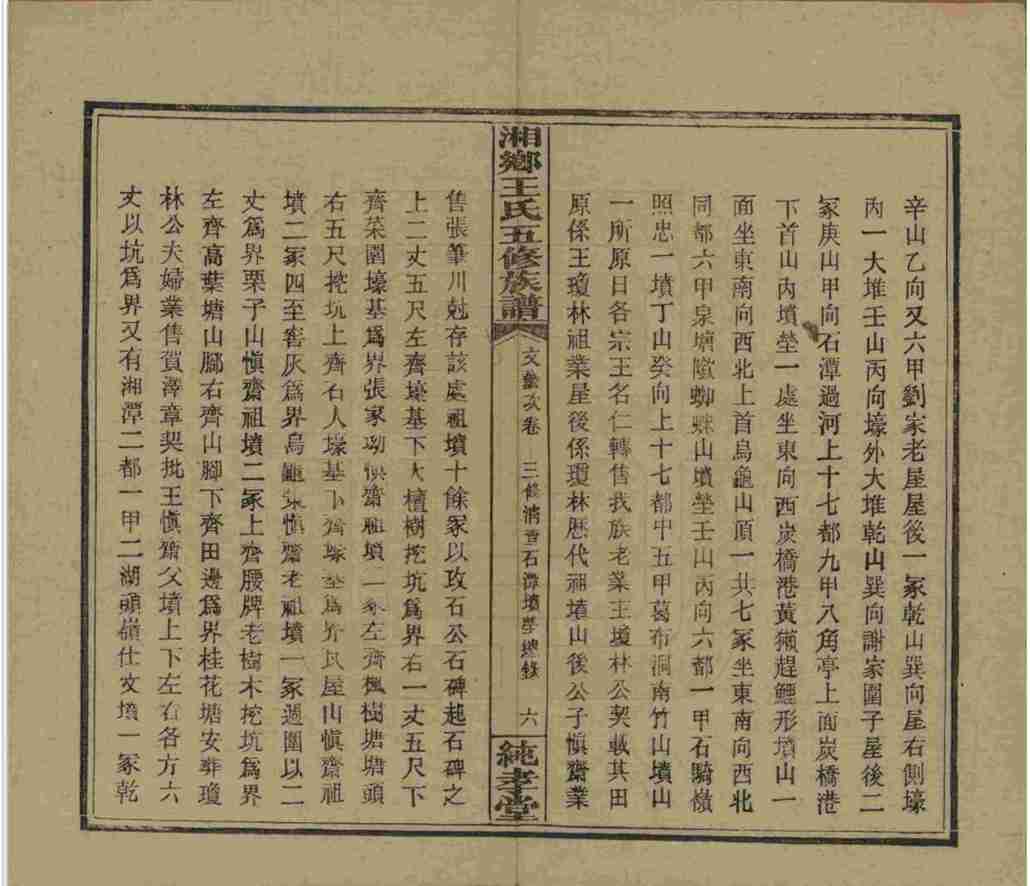 辛山乙向又六甲劉家老屋屋後一冢乾山巽向屋右側壕
內一大堆壬山丙向壕外大堆乾山巽向謝家圍子屋後二
冢庚山甲向石潭過河上十七都九甲八角亭上面炭橋港
下首山內墳塋一處坐東向西炭橋港黃獺趕鯉形墳山一
面坐東南向西北上首烏龜山頂一共七冢坐東南向西北
同都六甲泉塘隂蜘蛛山墳塋壬山丙向六都一甲石騎嶺
照忠一墳丁山癸向上十七都中五甲葛布洞南竹山墳山
一所原日各宗王名仁轉售我族老業王瓊林公契載其田
原係王瓊林祖業屋後係瓊林歷代祖墳山後公子愼齋業
湘鄉王氏五修族譜
文藝次卷 三修清查石潭墳塋總錄 六
純孝堂
售張筆川尅存該處祖墳十餘冢以攻石公石碑趂石碑之
上二丈五尺左齊壕基下大檀樹挖坑爲界右一丈五尺下
齊菜園壕基爲界張家坳愼齋祖墳一冢左齊楓樹塘塘頭
右五尺挖坑上齊石人壕基下齊壕塋爲界民屋山愼齋祖
墳二冢四至窖灰爲界烏龜 愼齋老祖墳一冢週圍以二
丈爲界栗子山愼齋祖墳二冢上齊腰牌老樹木挖坑爲界
左齊高葉塘山腳右齊山腳下齊田邊爲界桂花塘安葬瓊
林公夫婦業售賀濘章契批王愼齋父墳上下左右各方六
丈以坑爲界又有湘潭二都一甲二湖頭嶺仕文墳一冢乾